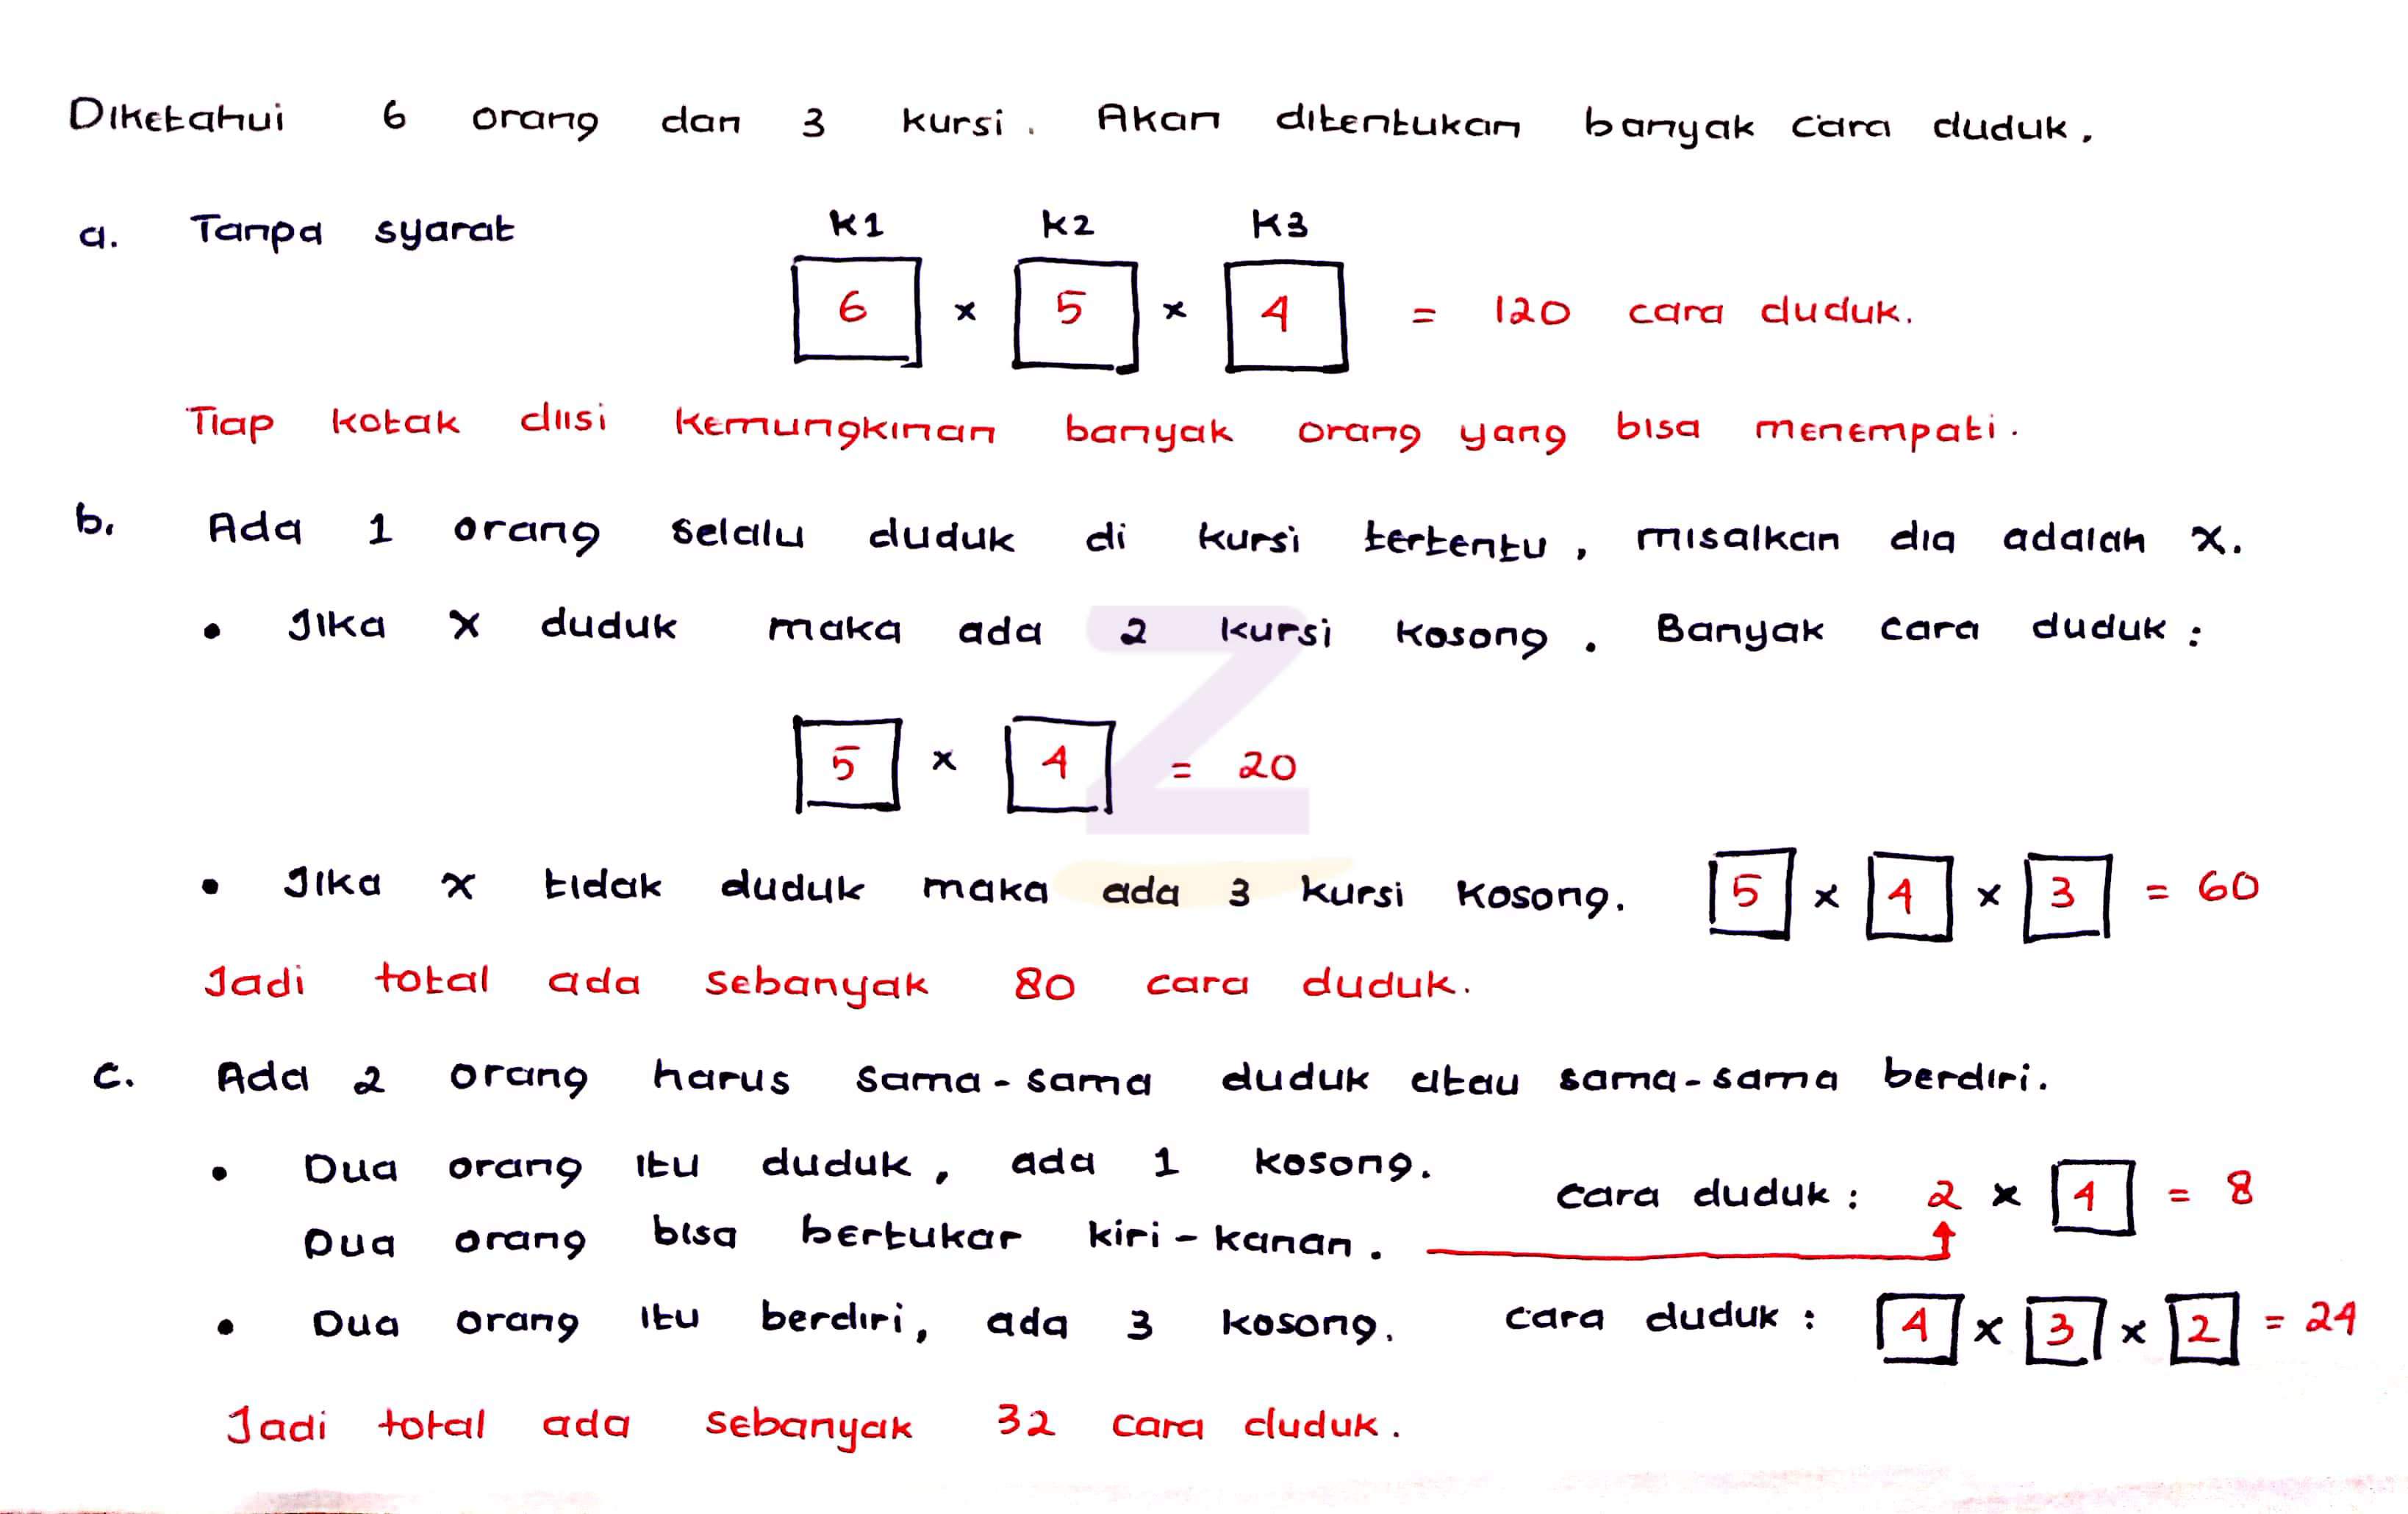 Diketahui 6 orang dan 3 kursi. Akan ditentukan banyak cara duduk.
a. Tanpa syarat
K1 K2 K3
6 x 5 x 4 = 120 cara duduk.
Tiap kotak diisi kemungkinan banyak orang yang bisa menempati.
b. Ada 1 orang selalu duduk di kursi tertentu, misalkan dia adalah X.
• Jika X duduk maka ada 2 kursi kosong. Banyak cara duduk:
5 x 4 = 20
• Jika X tidak duduk maka ada 3 kursi kosong. 5 x 4 x 3 = 60
Jadi total ada sebanyak 80 cara duduk.
c. Ada 2 orang harus sama-sama duduk atau sama-sama berdiri.
• Dua orang itu duduk, ada 1 kosong.
cara duduk: 2 x 4 = 8
Dua orang bisa bertukar kiri-kanan.
• Dua orang itu berdiri, ada 3 kosong. cara duduk: 4 x 3 x 2 = 24
Jadi total ada sebanyak 32 cara duduk.
Z